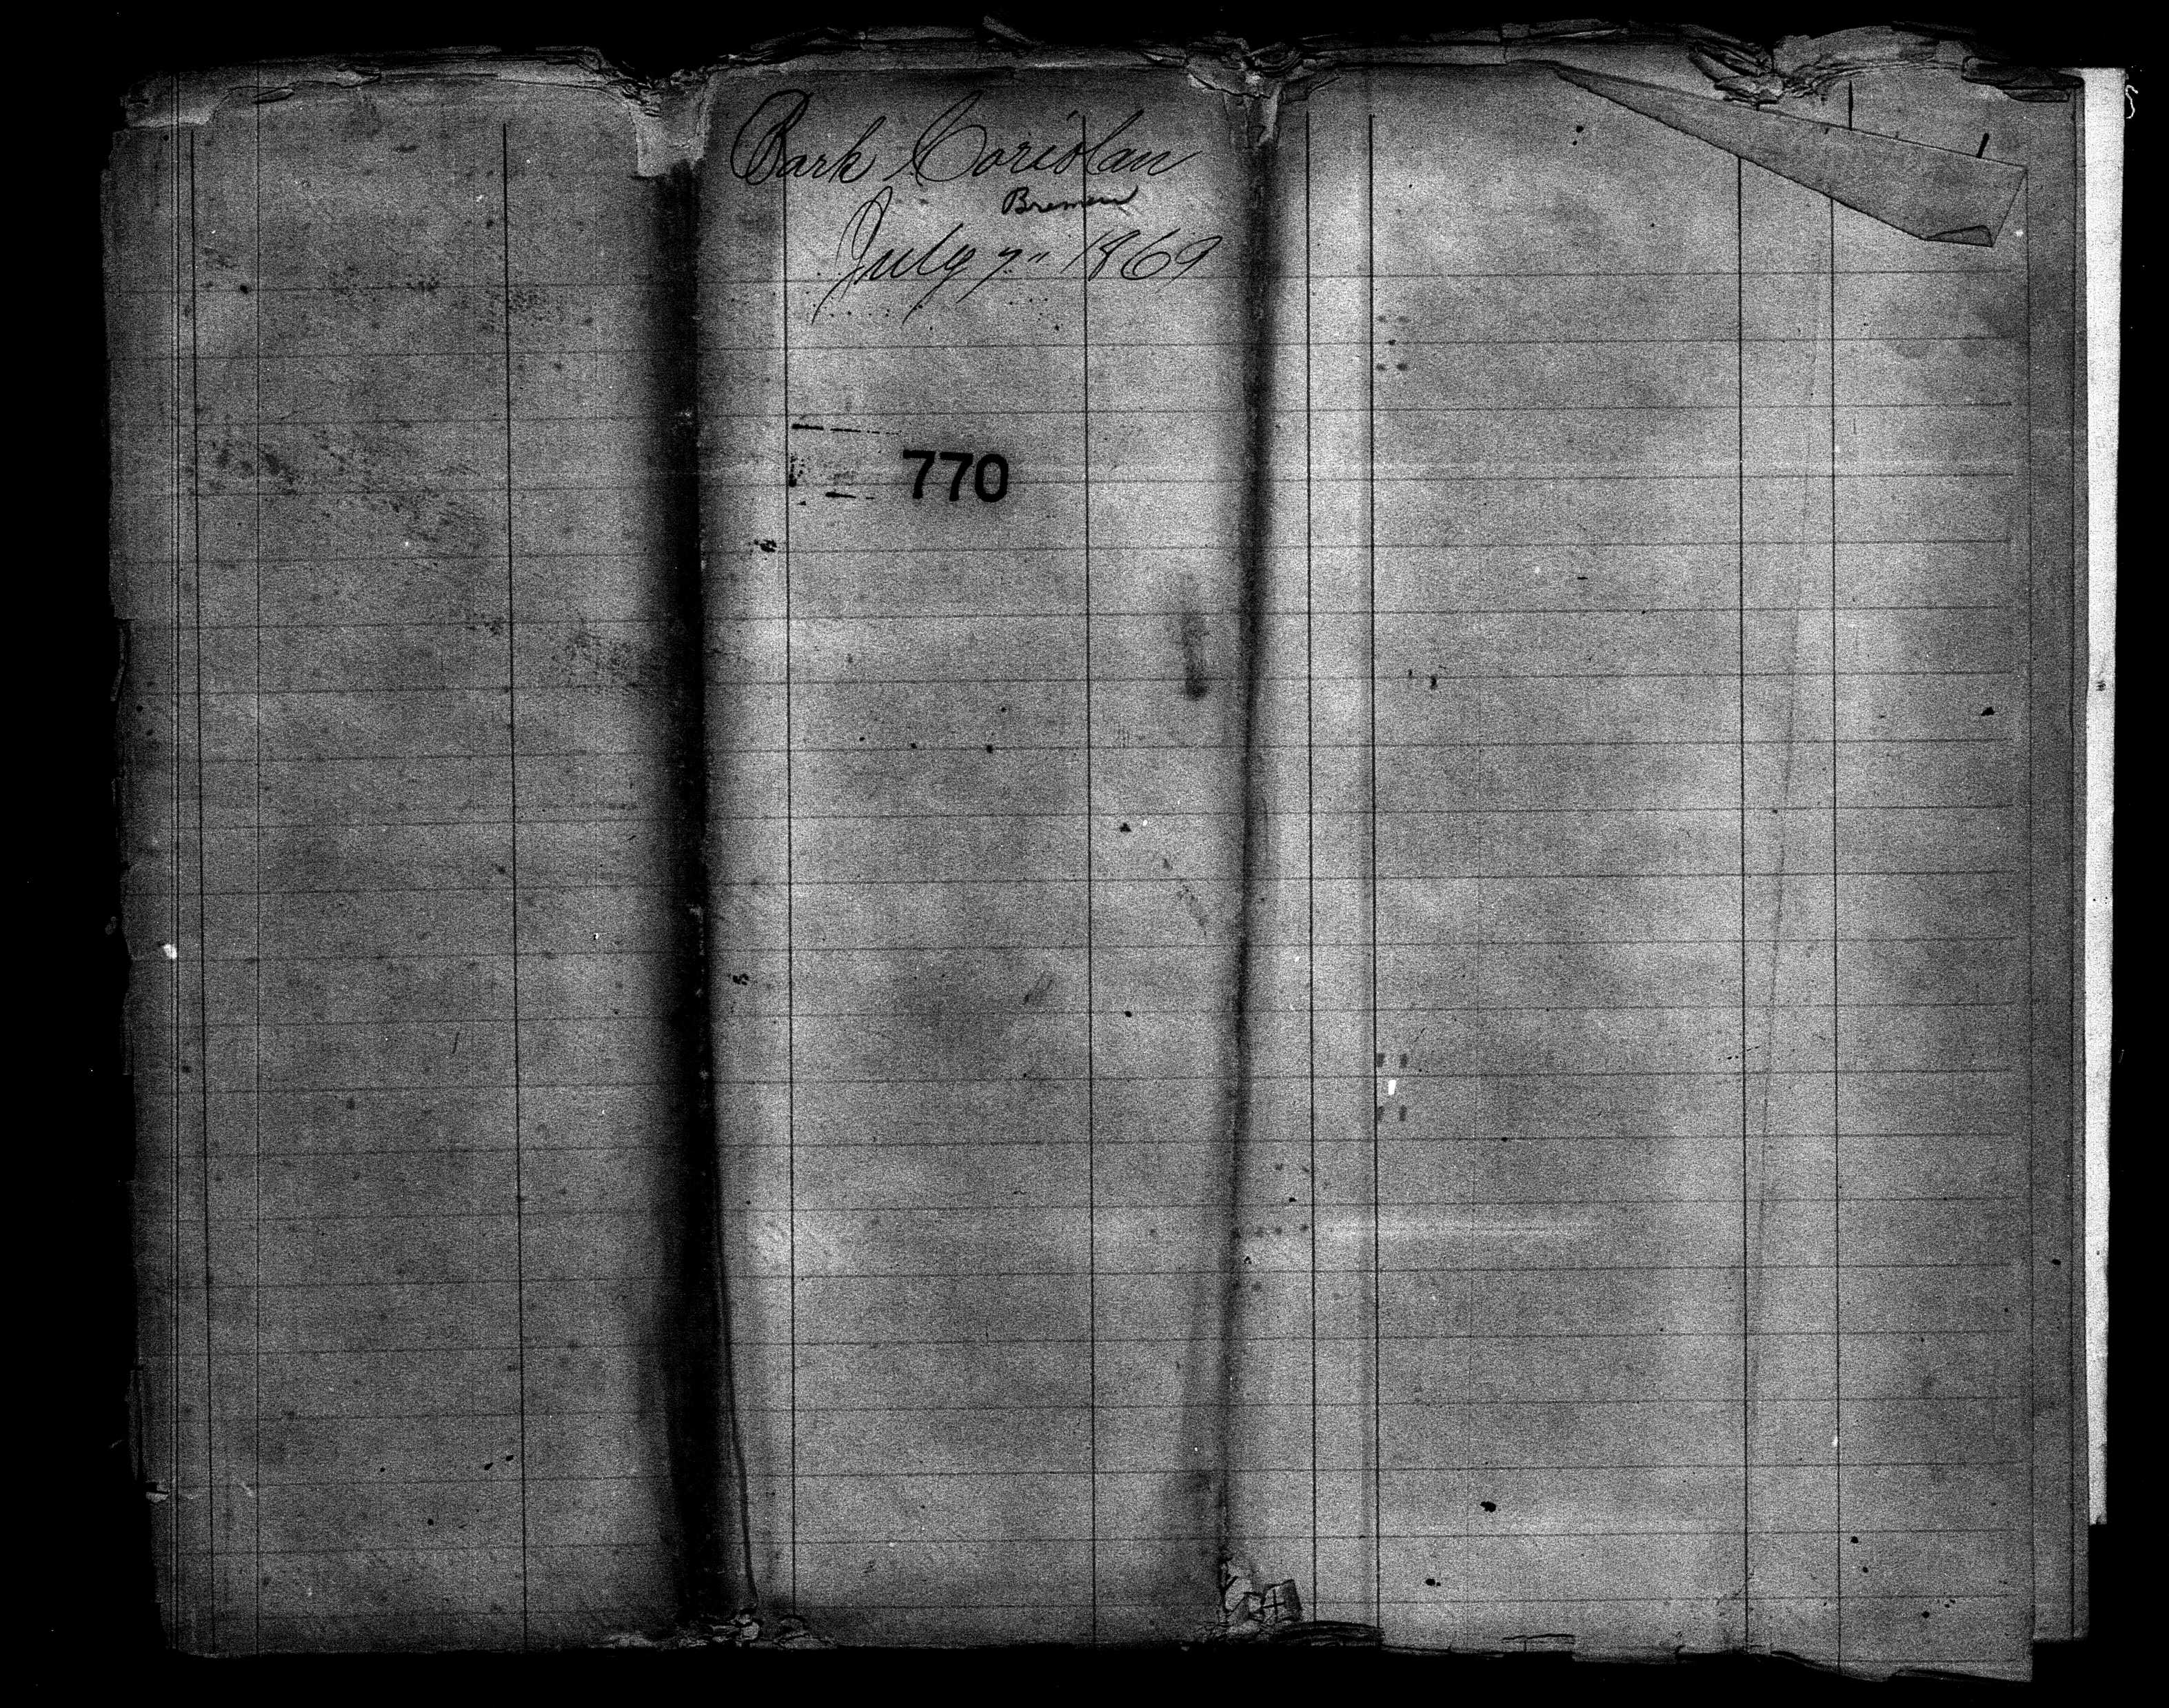 Bark Coriolan
Bremen
July 7" 1869
770